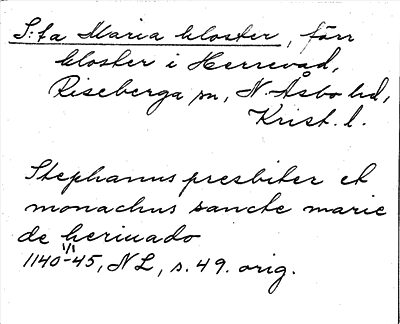 S:ta Maria kloster, förr
kloster i Herrevad,
Riseberga sn, N. Åsbo hd,
Krist. l.
Stephanus presbiter et
monachus sancte marie
de heriuado
1140-45, NL, s. 49. orig.